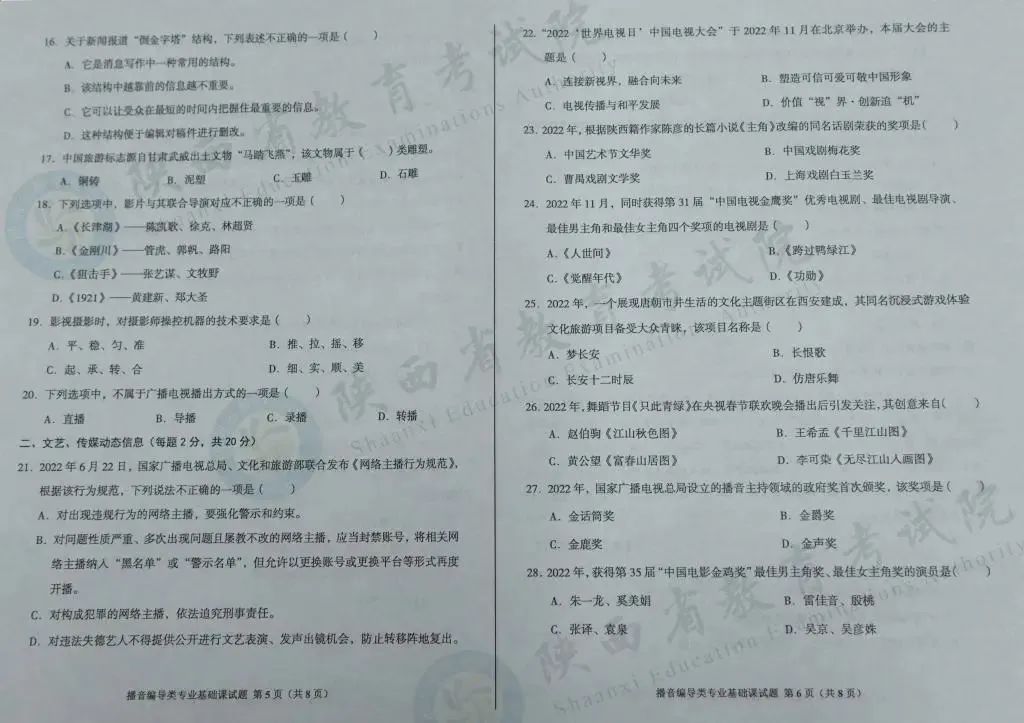 16. 关于新闻报道“倒金字塔”结构，下列表述不正确的一项是（　　）
A. 它是消息写作中一种常用的结构。
B. 该结构中越靠前的信息越不重要。
C. 它可以让受众在最短的时间内把握住最重要的信息。
D. 这种结构便于编辑对稿件进行删改。
17. 中国旅游标志源自甘肃武威出土文物“马踏飞燕”，该文物属于（　　）类雕塑。
A. 铜铸　B. 泥塑　C. 玉雕　D. 石雕
18. 下列选项中，影片与其联合导演对应不正确的一项是（　　）
A.《长津湖》——陈凯歌、徐克、林超贤
B.《金刚川》——管虎、郭帆、路阳
C.《狙击手》——张艺谋、文牧野
D.《1921》——黄建新、郑大圣
19. 影视摄影时，对摄影师操控机器的技术要求是（　　）
A. 平、稳、匀、准　B. 推、拉、摇、移
C. 起、承、转、合　D. 细、实、顺、美
20. 下列选项中，不属于广播电视播出方式的一项是（　　）
A. 直播　B. 导播　C. 录播　D. 转播
二、文艺、传媒动态信息（每题 2 分，共 20 分）
21. 2022 年 6 月 22 日，国家广播电视总局、文化和旅游部联合发布《网络主播行为规范》，
根据该行为规范，下列说法不正确的一项是（　　）
A. 对出现违规行为的网络主播，要强化警示和约束。
B. 对问题性质严重、多次出现问题且屡教不改的网络主播，应当封禁账号，将相关网
络主播纳入“黑名单”或“警示名单”，但允许以更换账号或更换平台等形式再度
开播。
C. 对构成犯罪的网络主播，依法追究刑事责任。
D. 对违法失德艺人不得提供公开进行文艺表演、发声出镜机会，防止转移阵地复出。
播音编导类专业基础课试题 第 5 页（共 8 页）
22. “2022‘世界电视日’中国电视大会”于 2022 年 11 月在北京举办，本届大会的主
题是（　　）
A. 连接新视界，融合向未来　B. 塑造可信可爱可敬中国形象
C. 电视传播与和平发展　D. 价值“视”界·创新追“机”
23. 2022 年，根据陕西籍作家陈彦的长篇小说《主角》改编的同名话剧荣获的奖项是（　　）
A. 中国艺术节文华奖　B. 中国戏剧梅花奖
C. 曹禺戏剧文学奖　D. 上海戏剧白玉兰奖
24. 2022 年 11 月，同时获得第 31 届“中国电视金鹰奖”优秀电视剧、最佳电视剧导演、
最佳男主角和最佳女主角四个奖项的电视剧是（　　）
A.《人世间》　B.《跨过鸭绿江》
C.《觉醒年代》　D.《功勋》
25. 2022 年，一个展现唐朝市井生活的文化主题街区在西安建成，其同名沉浸式游戏体验
文化旅游项目备受大众青睐，该项目名称是（　　）
A. 梦长安　B. 长恨歌
C. 长安十二时辰　D. 仿唐乐舞
26. 2022 年，舞蹈节目《只此青绿》在央视春节联欢晚会播出后引发关注，其创意来自（　　）
A. 赵伯驹《江山秋色图》　B. 王希孟《千里江山图》
C. 黄公望《富春山居图》　D. 李可染《无尽江山入画图》
27. 2022 年，国家广播电视总局设立的播音主持领域的政府奖首次颁奖，该奖项是（　　）
A. 金话筒奖　B. 金爵奖
C. 金鹿奖　D. 金声奖
28. 2022 年，获得第 35 届“中国电影金鸡奖”最佳男主角奖、最佳女主角奖的演员是（　　）
A. 朱一龙、奚美娟　B. 雷佳音、殷桃
C. 张译、袁泉　D. 吴京、吴彦姝
播音编导类专业基础课试题 第 6 页（共 8 页）
陕西省教育考试院
Shaanxi Education Examinations Authority
陕西省教育考试院
Shaanxi Education Examinations Authority
陕西省教育考试院
Shaanxi Education Examinations Authority